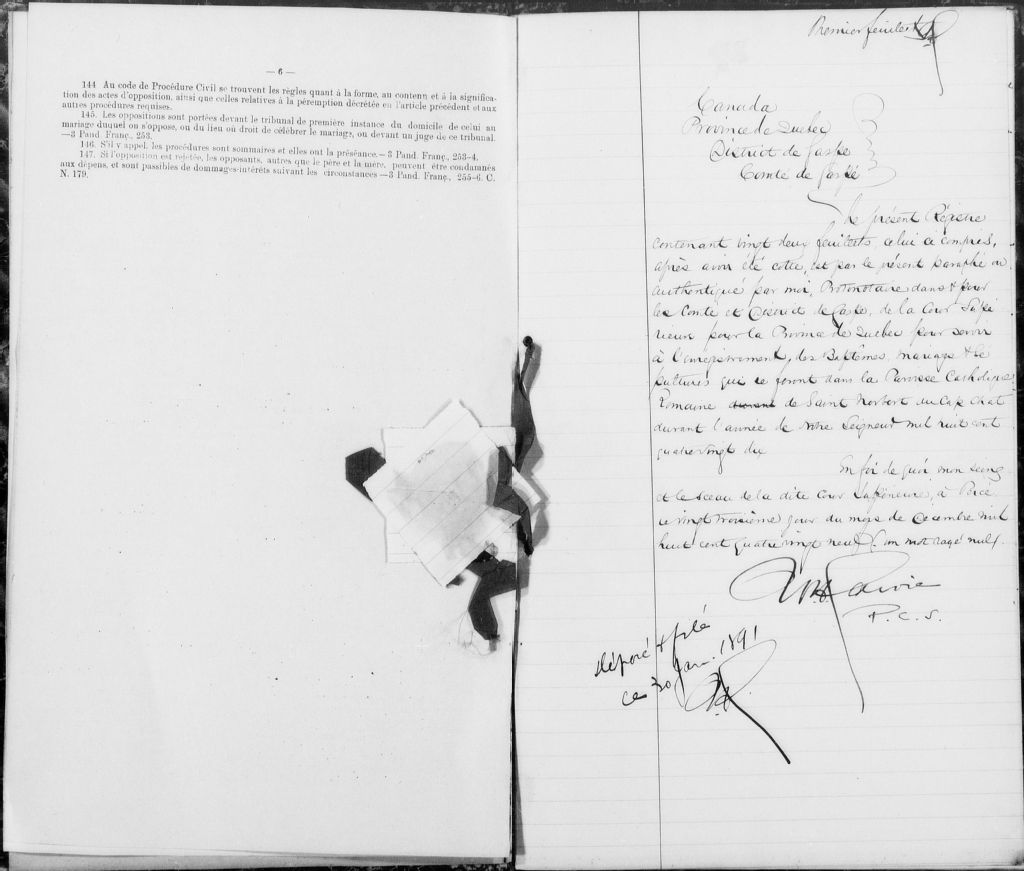 — 6 —
144 Au code de Procédure Civil se trouvent les règles quant à la forme, au contenu et à la significa-
tion des actes d'opposition, ainsi que celles relatives à la péremption décrétée en l'article précédent et aux
autres procédures requises.
145. Les oppositions sont portées devant le tribunal de première instance du domicile de celui au
mariage duquel on s'oppose, ou du lieu où droit de célébrer le mariage, ou devant un juge de ce tribunal.
—3 Pand. Franç., 253.
146. S'il y appel, les procédures sont sommaires et elles ont la préséance.—3 Pand. Franç., 253-4.
147. Si l'opposition est rejetée, les opposants, autres que le père et la mère, peuvent être condamnés
aux dépens, et sont passibles de dommages-intérêts suivant les circonstances—3 Pand. Franç., 255-6. C.
N. 179.
Premier feuillet
Canada
Province de Quebec
District de Gaspe
Comté de Gaspé
Le présent Régistre
contenant vingt deux feuillets, celui ci compris,
après avoir été cotté, est par le présent paraphé ou
authentiqué par moi, Protonotaire dans & pour
les Comté et District de Gaspe, de la Cour Supé
rieure pour la Province de Quebec pour servir
à l'enregistrement, des Baptêmes, mariages & Sé
pultures qui se feront dans la Paroisse Catholique
Romaine durant de Saint Norbert du Cap Chat
durant l'année de Notre Seigneur mil huit cent
quatrevingt dix
En foi de quoi mon seing
et le sceau de la dite Cour Supérieure, à Percé
ce vingt troisième jour du mois de Décembre mil
huit cent quatre vingt neuf. (un mot rayé nul).
P. C. S.
déposé & filé
ce 30 Jan. 1891